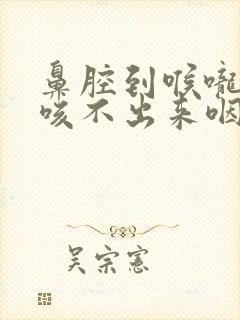 鼻腔到喉嚨
咳不出来咽
吴宗憲